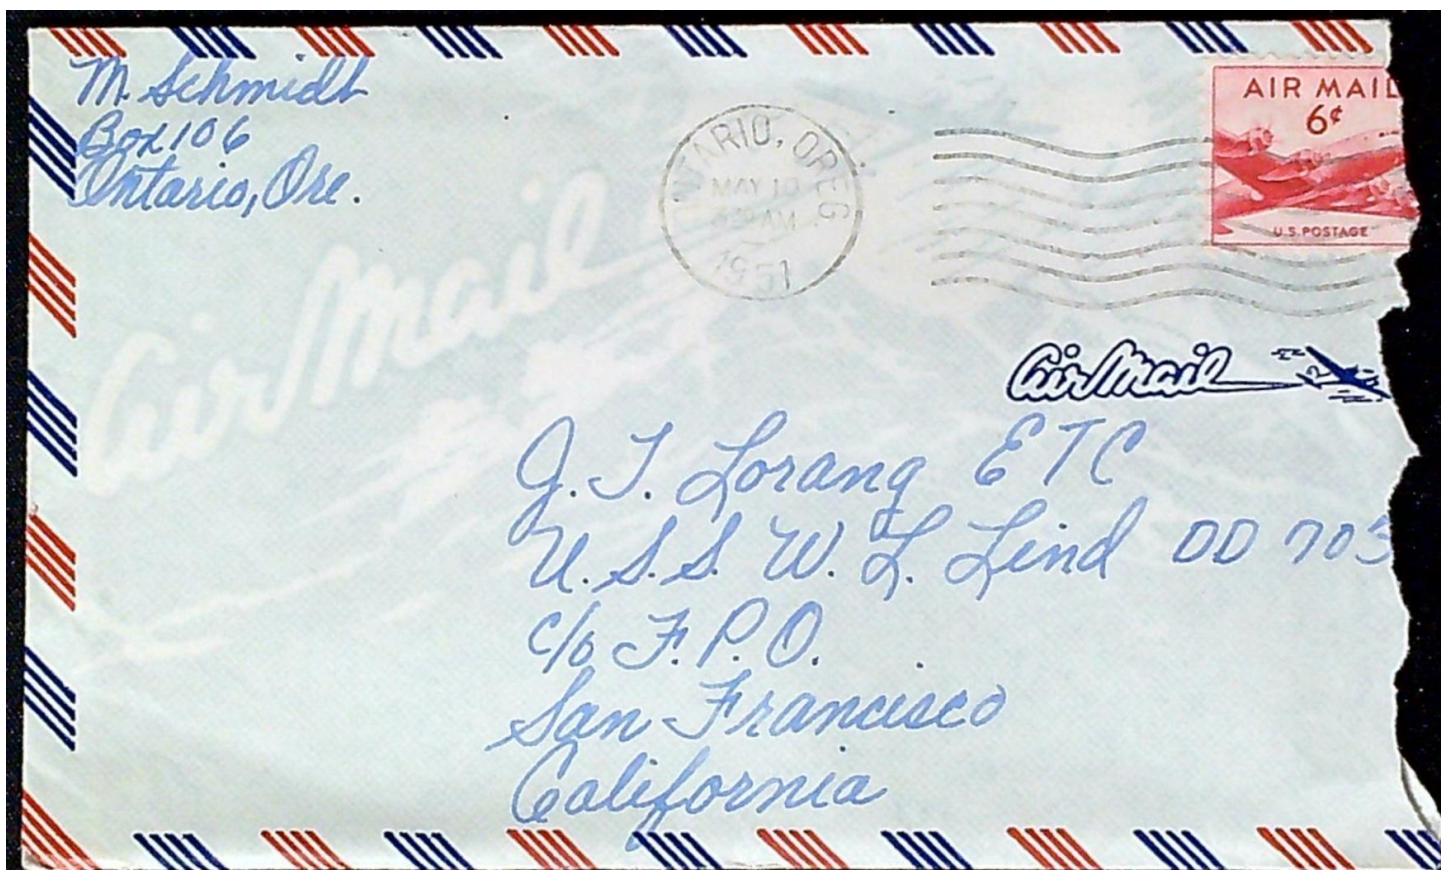 M. Schmidt
Box 106
Ontario, Ore.
ONTARIO, OREG
MAY 10
AM
1951
AIR MAIL
6¢
U.S. POSTAGE
Air Mail
Air Mail
J. T. Lorang ETC
U. S. S. W. L. Lind DD 703
c/o F. P. O.
San Francisco
California